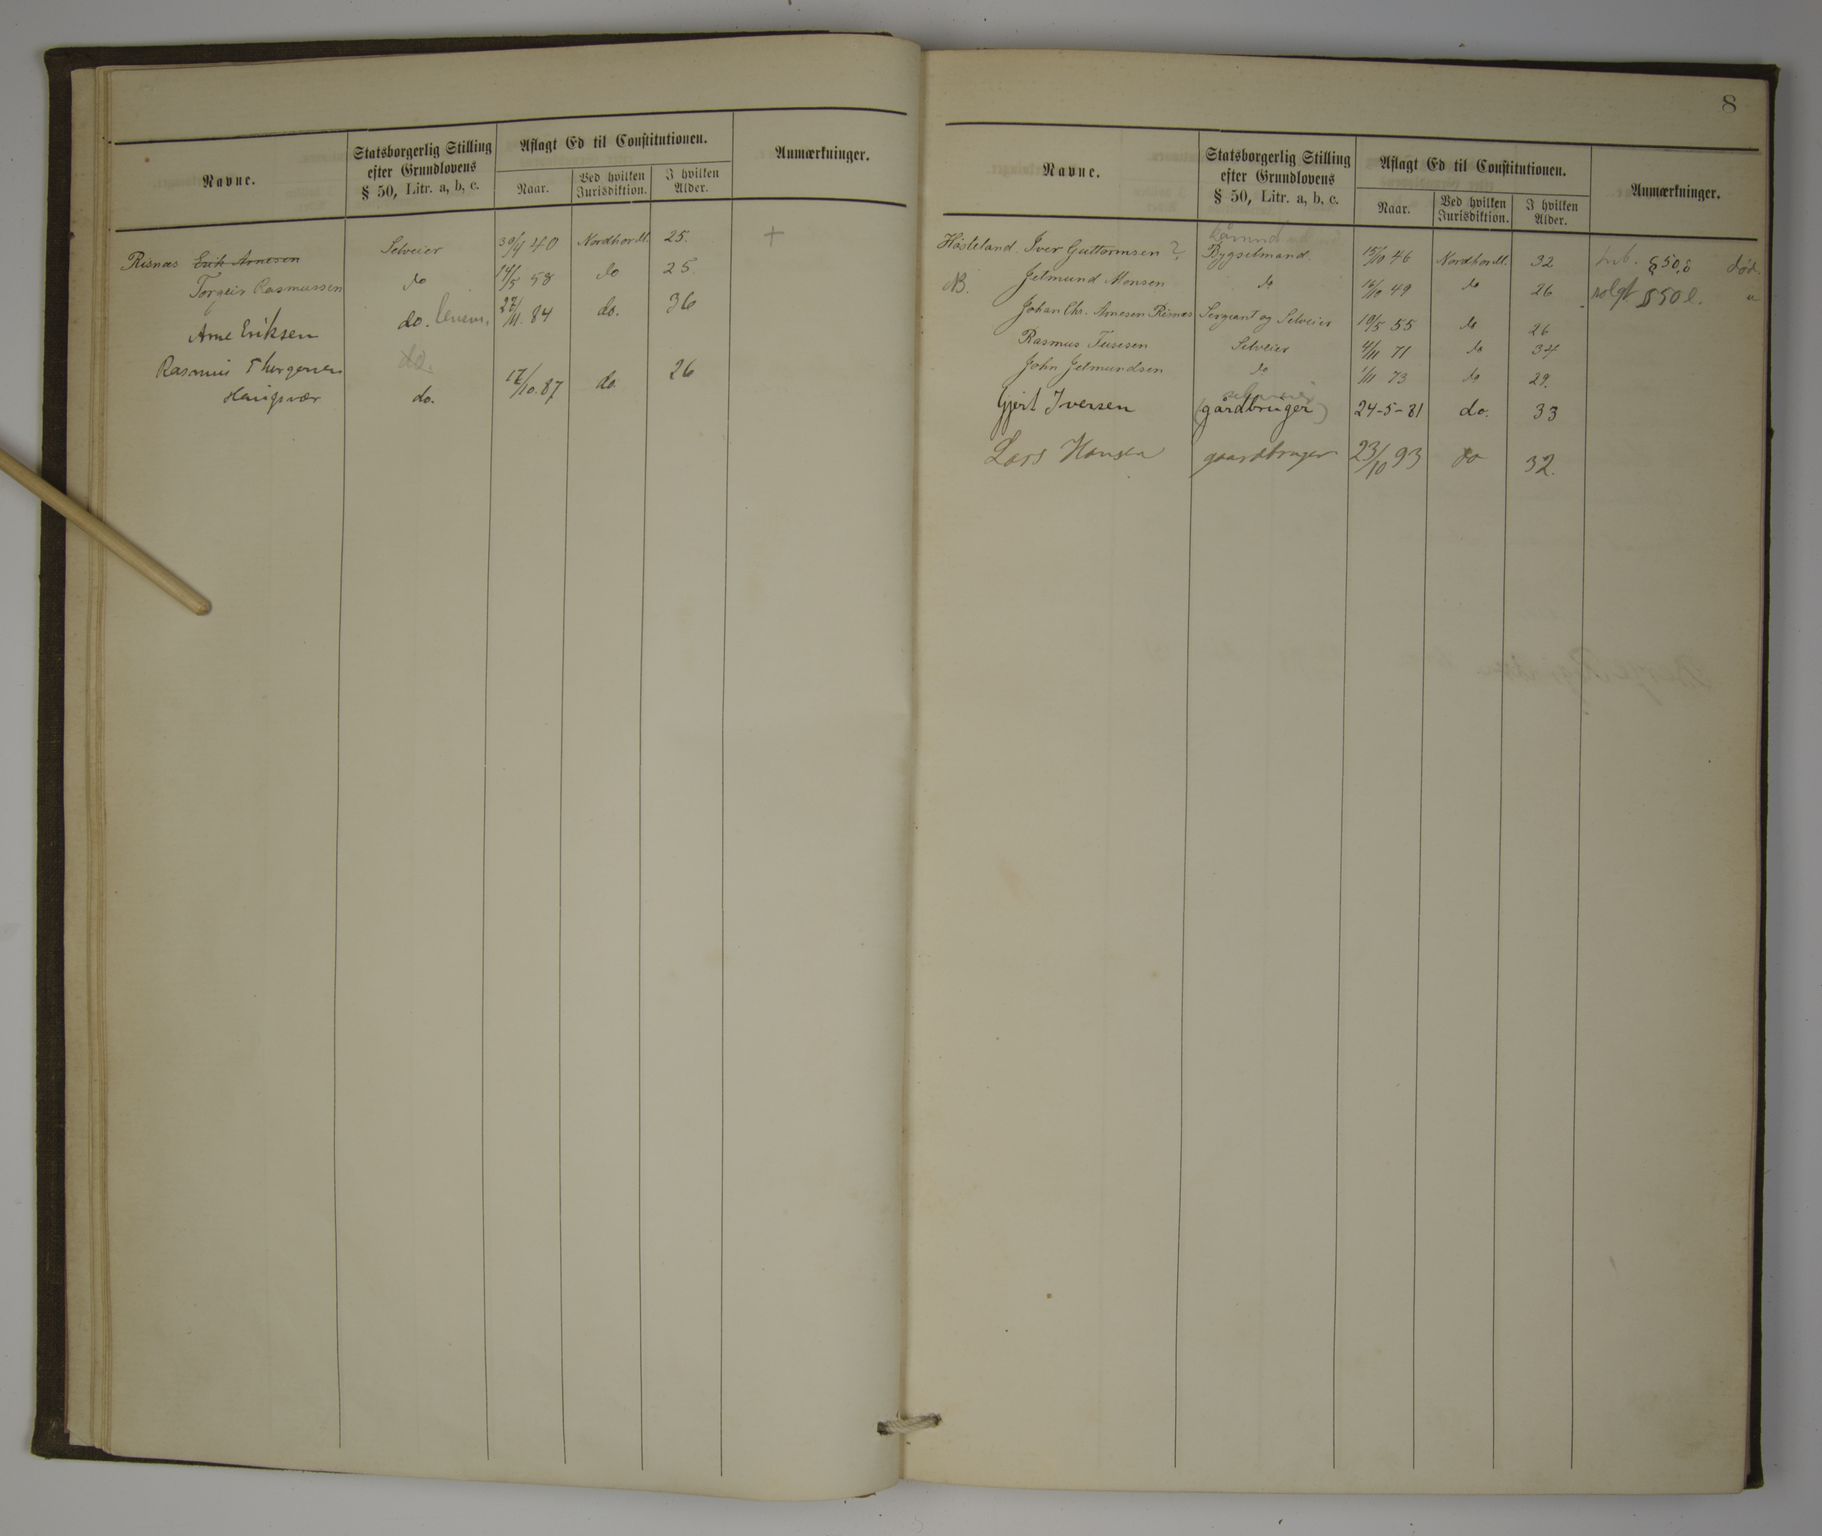 Navne.
Statsborgerlig Stilling
efter Grundlovens
§ 50, Litr. a, b, c.
Aflagt Ed til Constitutionen.
Naar.
Ved hvilken
Jurisdiktion.
I hvilken
Alder.
Anmærkninger.
Risnæs Erik Arnesen Selveier 30/9 40 Nordhordl. 25. +
Torgeir Rasmussen do 14/5 58 do 25.
Arne Eriksen do. 27/11. 84 do. 36
Rasmus Thorgersen do.
Haugsvær do. 17/10. 87 do 26
8
Navne.
Statsborgerlig Stilling
efter Grundlovens
§ 50, Litr. a, b, c.
Aflagt Ed til Constitutionen.
Naar.
Ved hvilken
Jurisdiktion.
I hvilken
Alder.
Anmærkninger.
Haaleland Iver Guttormsen ? Bygselmand. 15/10 46 Nordhordl. 32 § 50, død.
NB. Jetmund Monsen do 16/10 49 do 26 solgt § 50 "
Johan Chr. Arnesen Risnæs Sergeant og Selveier 19/5 55 do 26
Rasmus Tusesen Selveier 4/11 71 do 34
John Jetmundsen do 1/11 73 do 29.
selveier
Gjert Iversen (gårdbruger) 24-5-81 do. 33
Lars Hansen gaardbruger 23/10 93 do 32.